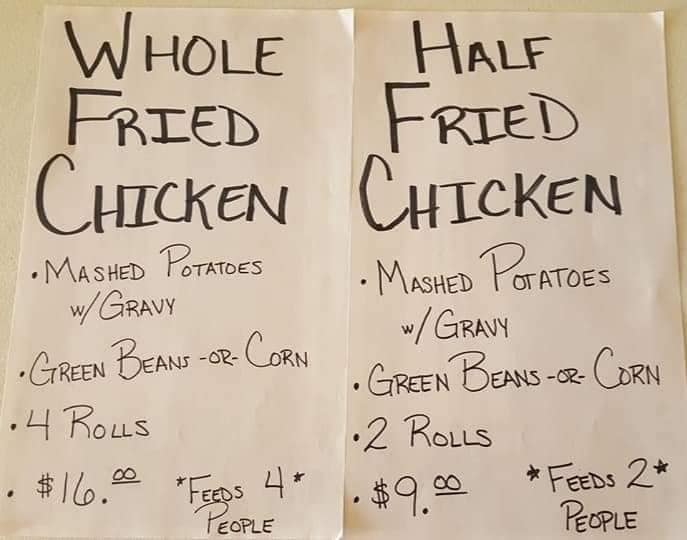 WHOLE
FRIED
CHICKEN
• MASHED POTATOES
w/ GRAVY
• GREEN BEANS -OR- CORN
• 4 ROLLS
• $16.00 *FEEDS 4*
PEOPLE
HALF
FRIED
CHICKEN
• MASHED POTATOES
w/ GRAVY
• GREEN BEANS -OR- CORN
• 2 ROLLS
• $9.00 *FEEDS 2*
PEOPLE